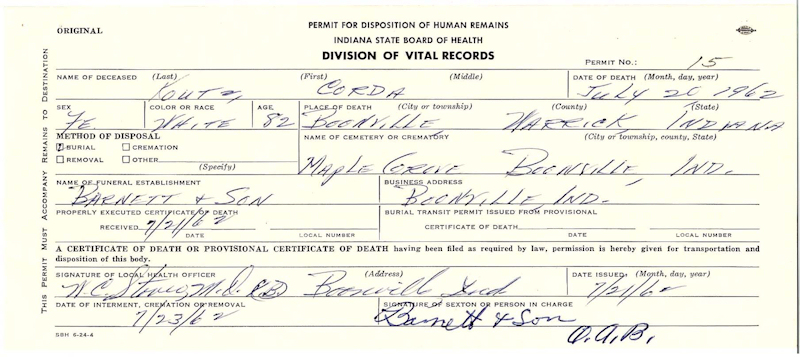 ORIGINAL
PERMIT FOR DISPOSITION OF HUMAN REMAINS
INDIANA STATE BOARD OF HEALTH
DIVISION OF VITAL RECORDS
PERMIT NO.: 15
NAME OF DECEASED (Last) (First) (Middle) DATE OF DEATH (Month, day, year)
Koutz, CORDA July 20 1962
SEX COLOR OR RACE AGE PLACE OF DEATH (City or township) (County) (State)
Fe. WHITE 82 BOONVILLE WARRICK, INDIANA
METHOD OF DISPOSAL NAME OF CEMETERY OR CREMATORY (City or township, county, State)
BURIAL CREMATION
REMOVAL OTHER MAPLE GROVE BOONVILLE, IND.
(Specify)
NAME OF FUNERAL ESTABLISHMENT BUSINESS ADDRESS
BARNETT & SON BOONVILLE, IND.
PROPERLY EXECUTED CERTIFICATE OF DEATH BURIAL TRANSIT PERMIT ISSUED FROM PROVISIONAL
RECEIVED 7/21/62 CERTIFICATE OF DEATH
DATE LOCAL NUMBER DATE LOCAL NUMBER
A CERTIFICATE OF DEATH OR PROVISIONAL CERTIFICATE OF DEATH having been filed as required by law, permission is hereby given for transportation and
disposition of this body.
SIGNATURE OF LOCAL HEALTH OFFICER (Address) DATE ISSUED: (Month, day, year)
W.C. M.D. Boonville Ind 7/21/62
DATE OF INTERMENT, CREMATION OR REMOVAL SIGNATURE OF SEXTON OR PERSON IN CHARGE
7/23/62 Barnett & Son
O.A.B.
SBH 6-24-4
THIS PERMIT MUST ACCOMPANY REMAINS TO DESTINATION